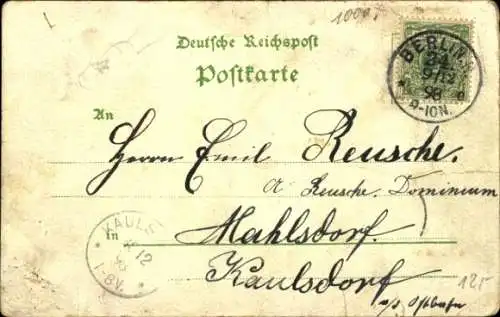 1000
Deutsche Reichspost
Postkarte
BERLIN
24
9/12
98
9-10N.
An
Herrn Emil Reusche.
Reusche. Dominium
In
Mahlsdorf.
Kaulsdorf
a/d Ostbahn
KAULS
12
1-8V.
125